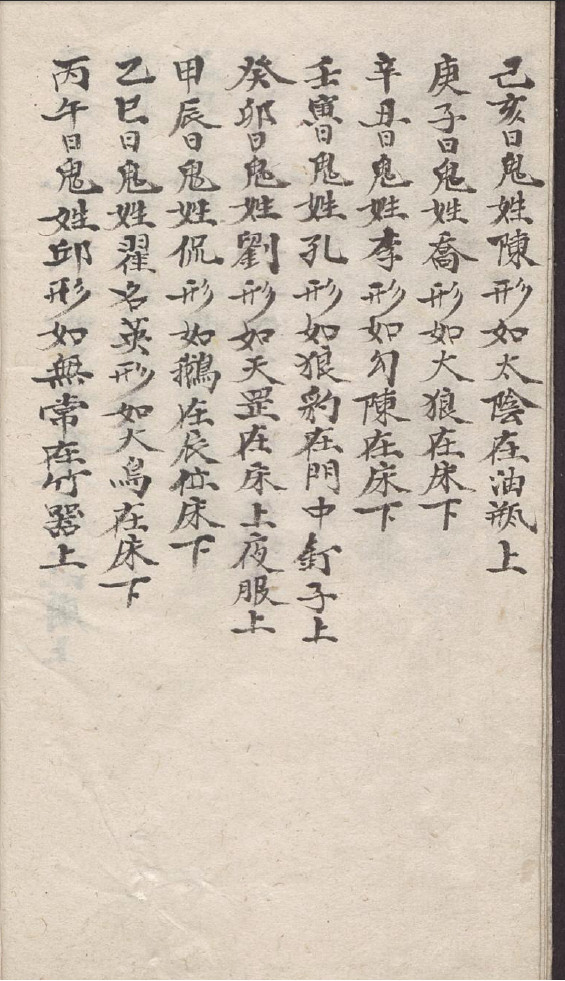 己亥日鬼姓陳形如太陰在油瓶上
庚子日鬼姓喬形如大狼在床下
辛丑日鬼姓李形如勾陳在床下
壬寅日鬼姓孔形如狼豹在門中釘子上
癸卯日鬼姓劉形如天罡在床上夜服上
甲辰日鬼姓侃形如鵝在辰位床下
乙巳日鬼姓翟名英形如大鳥在床下
丙午日鬼姓邱形如無常在竹器上